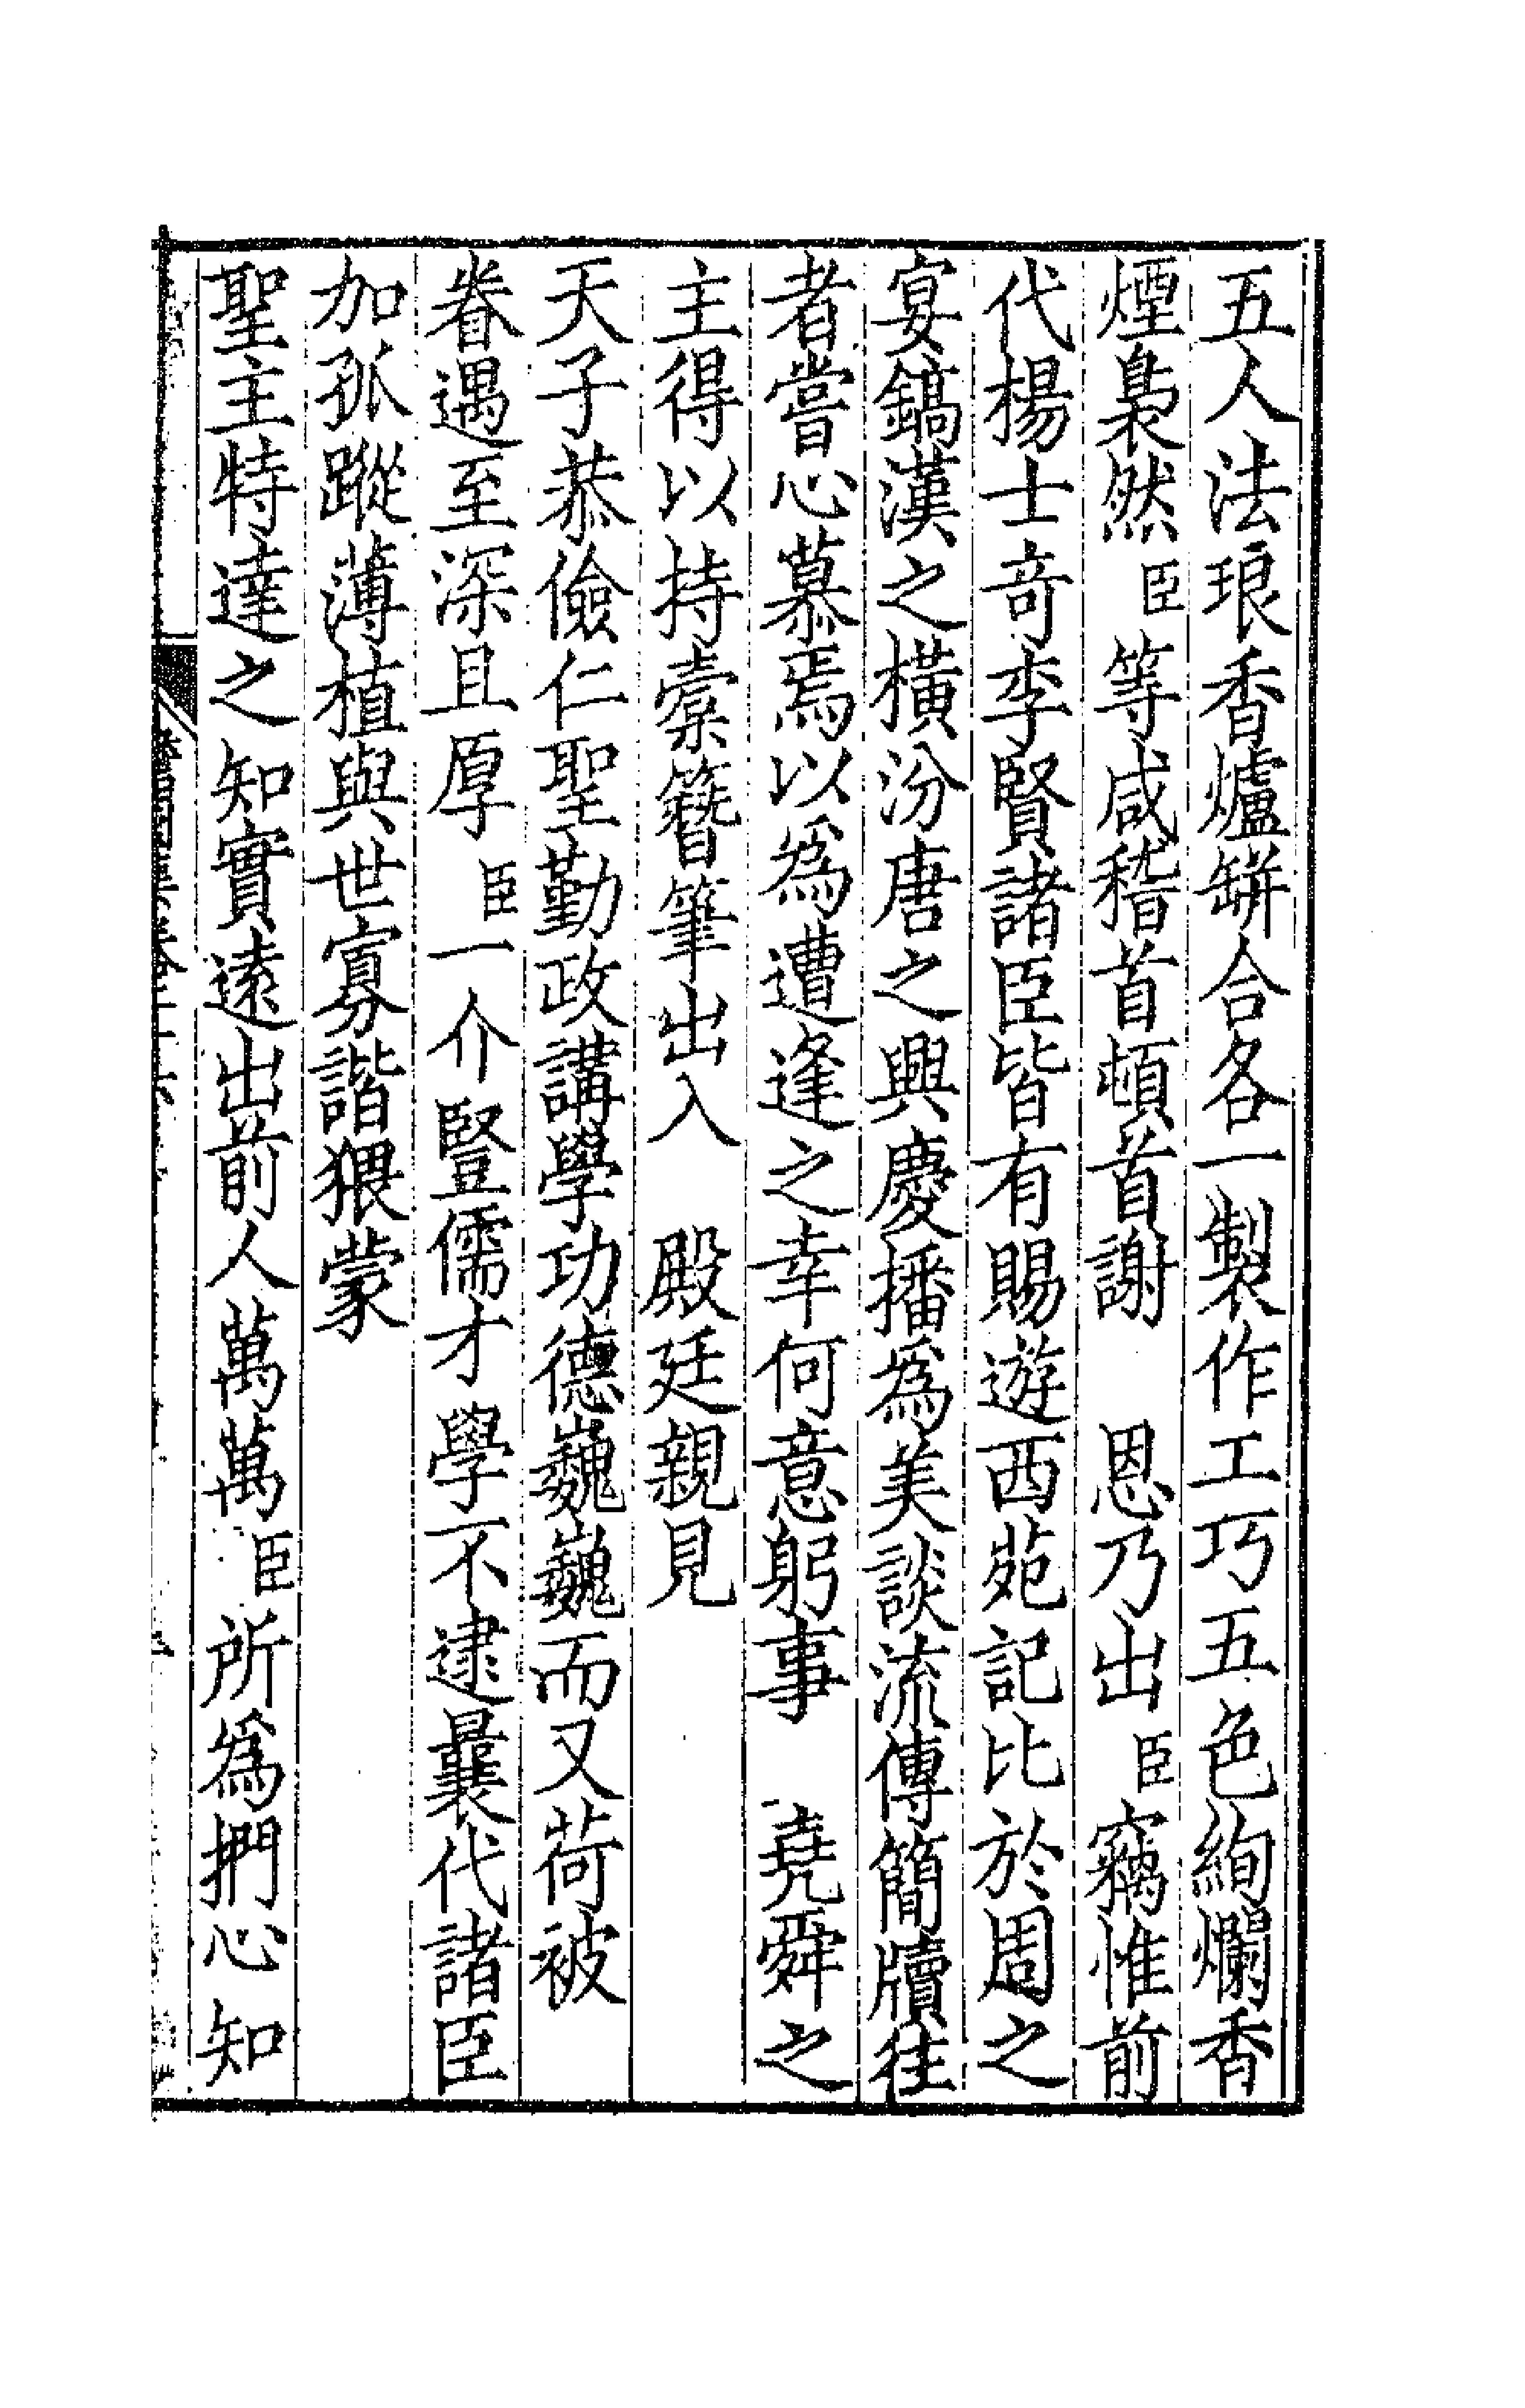 五人法琅香爐缾合各一製作工巧五色絢爛香
煙裊然臣等咸稽首頓首謝　恩乃出臣竊惟前
代楊士奇李賢諸臣皆有賜遊西苑記比於周之
宴鎬漢之橫汾唐之興慶播為美談流傳簡牘往
者嘗心慕焉以為遭逢之幸何意躬事　堯舜之
主得以持橐簪筆出入　殿廷親見
天子恭儉仁聖勤政講學功德巍巍而又荷被
眷遇至深且厚臣一介豎儒才學不逮曩代諸臣
加孤蹤薄植與世寡諧猥蒙
聖主特達之知實遠出前人萬萬臣所為捫心知